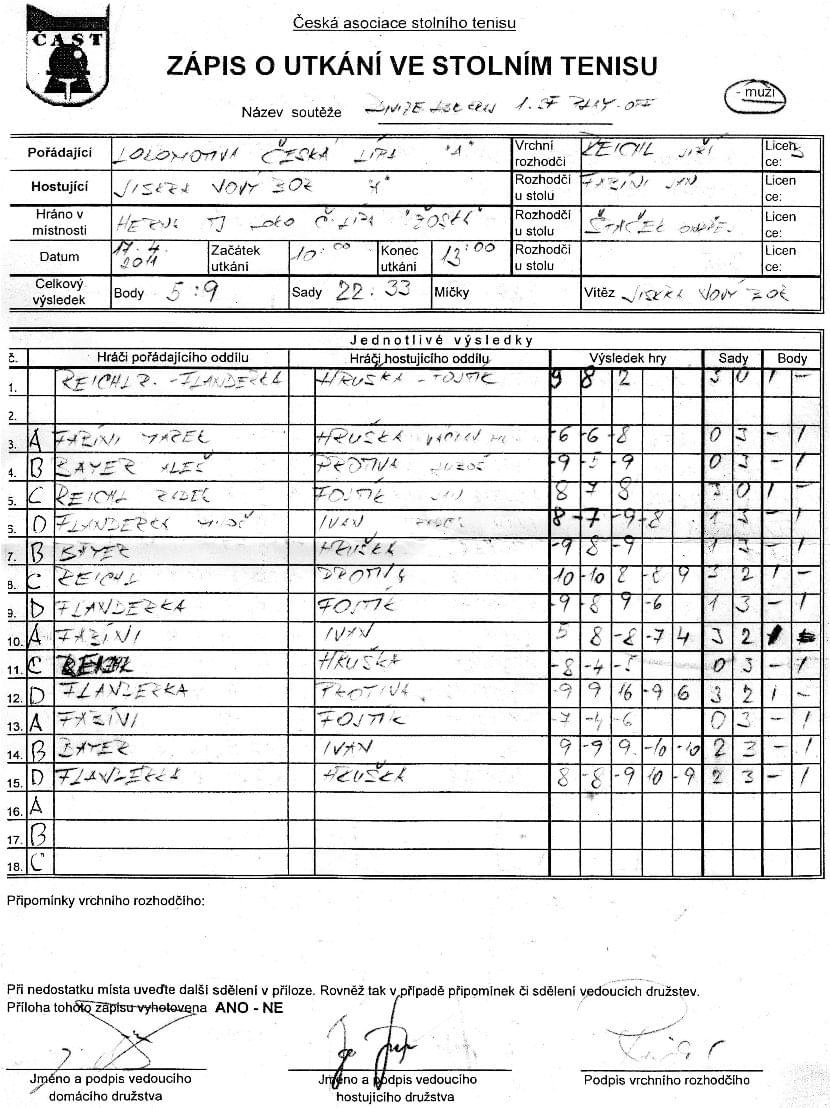 Česká asociace stolního tenisu
ČAST
ZÁPIS O UTKÁNÍ VE STOLNÍM TENISU
- muži
Název soutěže 1. SF PLAY-OFF
Pořádající LOKOMOTIVA ČESKÁ LÍPA "A" Vrchní rozhodčí REICHL JIŘÍ Licen ce:
Hostující JISKRA NOVÝ BOR Rozhodčí u stolu FABÍNI JAN Licen ce:
Hráno v místnosti HERNA TJ LOKO Č. LÍPA Rozhodčí u stolu Licen ce:
Datum 17.4. 2011 Začátek utkání 10:00 Konec utkání 13:00 Rozhodčí u stolu Licen ce:
Celkový výsledek Body 5:9 Sady 22:33 Míčky Vítěz JISKRA NOVÝ BOR
Jednotlivé výsledky
č. Hráči pořádajícího oddílu Hráči hostujícího oddílu Výsledek hry Sady Body
1. REICHL R. - FLANDERKA HRUŠKA - FOJTÍK 9 8 2 3 0 1 -
2.
3. A FABÍNI MAREK HRUŠKA -6 -6 -8 0 3 - 1
4. B BAYER ALEŠ PROTIVA -9 -5 -9 0 3 - 1
5. C REICHL RADEK FOJTÍK JAN 8 7 8 3 0 1 -
6. D FLANDERKA IVAN 8 -7 -9 -8 1 3 - 1
7. B BAYER HRUŠKA -9 8 -9 1 3 - 1
8. C REICHL PROTIVA 10 -10 8 -8 9 3 2 1 -
9. D FLANDERKA FOJTÍK -9 -8 9 -6 1 3 - 1
10. A FABÍNI IVAN 5 8 -8 -7 4 3 2 1 -
11. C REICHL HRUŠKA -8 -4 -5 0 3 - 1
12. D FLANDERKA PROTIVA -9 9 16 -9 6 3 2 1 -
13. A FABÍNI FOJTÍK -7 -4 -6 0 3 - 1
14. B BAYER IVAN 9 -9 9 -10 -10 2 3 - 1
15. D FLANDERKA HRUŠKA 8 -8 -9 10 -9 2 3 - 1
16. A
17. B
18. C
Připomínky vrchního rozhodčího:
Při nedostatku místa uveďte další sdělení v příloze. Rovněž tak v případě připomínek či sdělení vedoucích družstev.
Příloha tohoto zápisu vyhotovena ANO - NE
Jméno a podpis vedoucího domácího družstva
Jméno a podpis vedoucího hostujícího družstva
Podpis vrchního rozhodčího